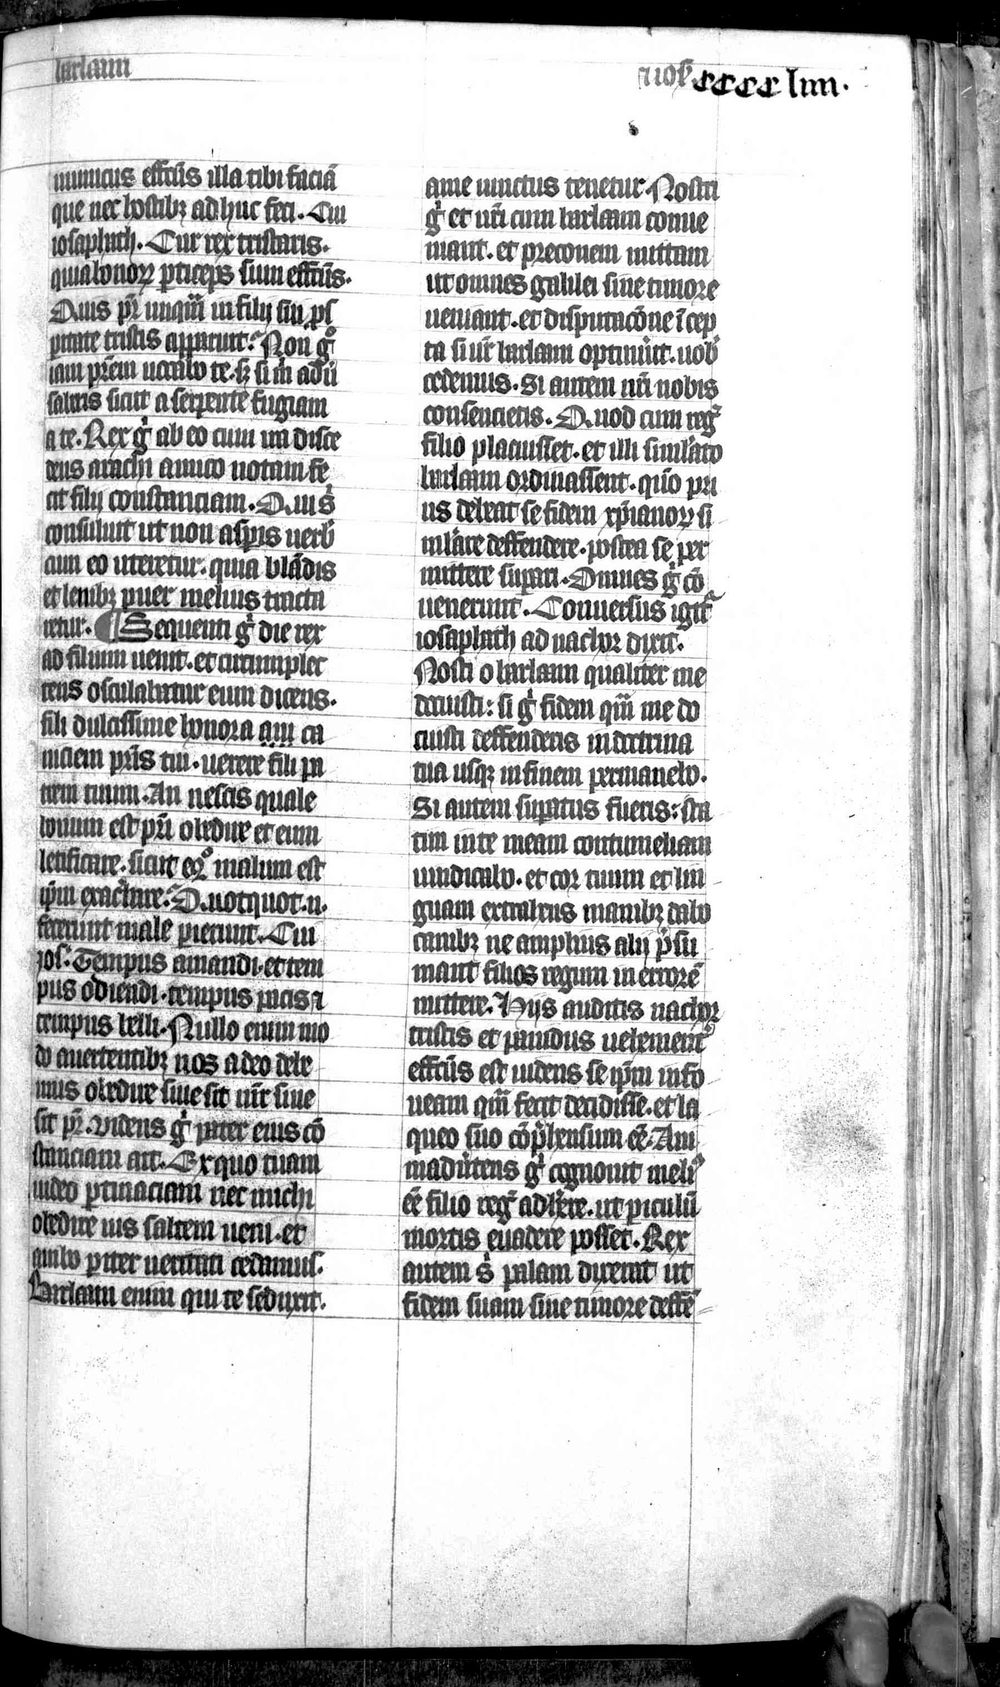 barlaam
ccccliiii.
inimicus effcūs illa tibi faciā
que nec hostibꝫ adhuc feci. Cui
iosaphath. Cur rex tristaris.
quia bonoꝝ pticeps sum effcūs.
Quis pr̄ unqm̄ in filij sui ps
pitate tristis apparuit. Non gͦ
iam pr̄em uocabo te. sꝫ si m̄ adū
saberis sicut a serpente fugiam
a te. Rex gͥ ab eo cum ira disce
dens arachi amico notam fe
cit filij constanciam. Qui sͥ
consuluit ut non aspis uerb̄
cum eo uteretur. quia blādis
et lenibꝫ puer melius tracta
retur. ¶ Sequenti gͥ die rex
ad filium uenit. et circumplec
tens osculabatur eum dicens.
fili dulcissime honora
niciem pr̄is tui. uerere fili pa
trem tuum. An nescis quale
bonum est pr̄i obedire et eum
letificare. sicut eͦ malum est
ip̄m exacerbare. Quotquot .n.
fecerunt male perierunt. Cui
ios. Tempus amandi. et tem
pus odiendi. tempus pacis ⁊
tempus belli. Nullo enim mo
do auertentibꝫ nos a deo debe
mus obedire siue sit mr̄ siue
sit pr̄. Videns gͥ pater eius cō
stanciam ait. Ex quo tuam
uideo ptinaciam nec michi
obedire uis saltem ueni. et
ambo pariter ueritati credamus.
Barlaam enim qui te seduxit.
a me uinctus tenetur. Nostri
gͥ et ur̄i cum barlaam conue
niant. et preconem mittam
ut omnes galilei sine timore
ueniant. et disputacōne īcep
ta si ur̄ barlaam optinuīt. uob̄
credemus. Si autem nr̄i nobis
consencietis. Quod cum reḡ
filio placuisset. et illi simlato
barlaam ordinassent. quō pri
us debeat se fidem xp̄ianoꝝ si
mulare deffendere. postea se per
mittere supari. Omnes gͥ cō
uenerunt. Conuersus igit̄
iosaphath ad nachor dixit.
Nosti o barlaam qualiter me
docuisti: si gͥ fidem qm̄ me do
cuisti deffenderis in doctrina
tua usqꝫ in finem permanebo.
Si autem supatus fueris: sta
tim in te meam contumeliam
uindicabo. et cor tuum et lin
guam extrahens manibꝫ dabo
canibꝫ ne amplius alij p̄su
mant filios regum in errorē
mittere. Hijs auditis nachor
tristis et pauidus uehement̄
effcūs est uidens se ip̄m in fo
ueam qm̄ fecit decidisse. et la
queo suo cōp̄hensum eē. Ani
maduertens gͥ cognouit meliꝰ
eē filio reḡ adherere. ut piculū
mortis euadere posset. Rex
autem sͥ palam dixerat ut
fidem suam sine timore deffē